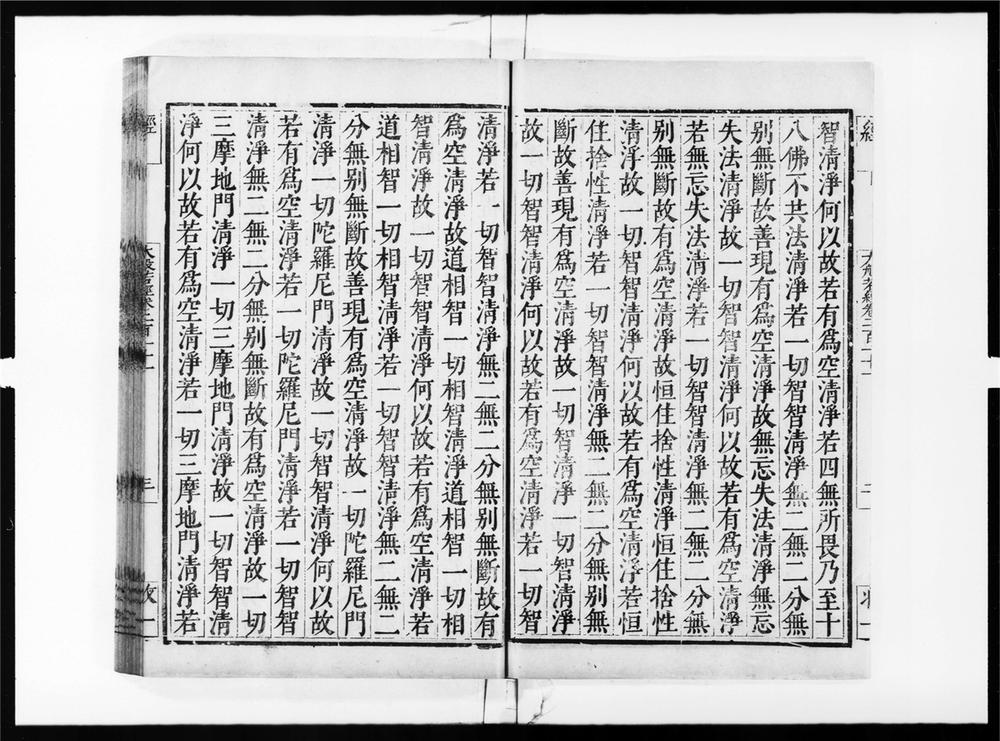 智清淨何以故若有爲空清淨若四無所畏乃至十
八佛不共法清淨若一切智智清淨無二無二分無
別無斷故善現有爲空清淨故無忘失法清淨無忘
失法清淨故一切智智清淨何以故若有爲空清淨
若無忘失法清淨若一切智智清淨無二無二分無
別無斷故有爲空清淨故恒住捨性清淨恒住捨性
清淨故一切智智清淨何以故若有爲空清淨若恒
住捨性清淨若一切智智清淨無二無二分無別無
斷故善現有爲空清淨故一切智清淨一切智清淨
故一切智智清淨何以故若有爲空清淨若一切智
清淨若一切智智清淨無二無二分無別無斷故有
爲空清淨故道相智一切相智清淨道相智一切相
智清淨故一切智智清淨何以故若有爲空清淨若
道相智一切相智清淨若一切智智清淨無二無二
分無別無斷故善現有爲空清淨故一切陀羅尼門
清淨一切陀羅尼門清淨故一切智智清淨何以故
若有爲空清淨若一切陀羅尼門清淨若一切智智
清淨無二無二分無別無斷故有爲空清淨故一切
三摩地門清淨一切三摩地門清淨故一切智智清
淨何以故若有爲空清淨若一切三摩地門清淨若
經